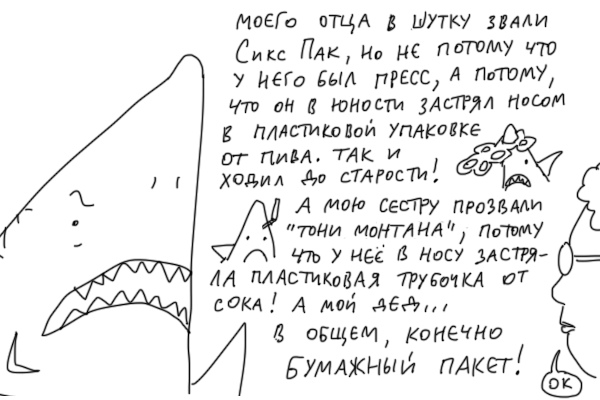 МОЕГО ОТЦА В ШУТКУ ЗВАЛИ
СИКС ПАК, НО НЕ ПОТОМУ ЧТО
У НЕГО БЫЛ ПРЕСС, А ПОТОМУ,
ЧТО ОН В ЮНОСТИ ЗАСТРЯЛ НОСОМ
В ПЛАСТИКОВОЙ УПАКОВКЕ
ОТ ПИВА. ТАК И
ХОДИЛ ДО СТАРОСТИ!
А МОЮ СЕСТРУ ПРОЗВАЛИ
"ТОНИ МОНТАНА", ПОТОМУ
ЧТО У НЕЁ В НОСУ ЗАСТРЯ-
ЛА ПЛАСТИКОВАЯ ТРУБОЧКА ОТ
СОКА! А МОЙ ДЕД...
В ОБЩЕМ, КОНЕЧНО
БУМАЖНЫЙ ПАКЕТ!
ОК